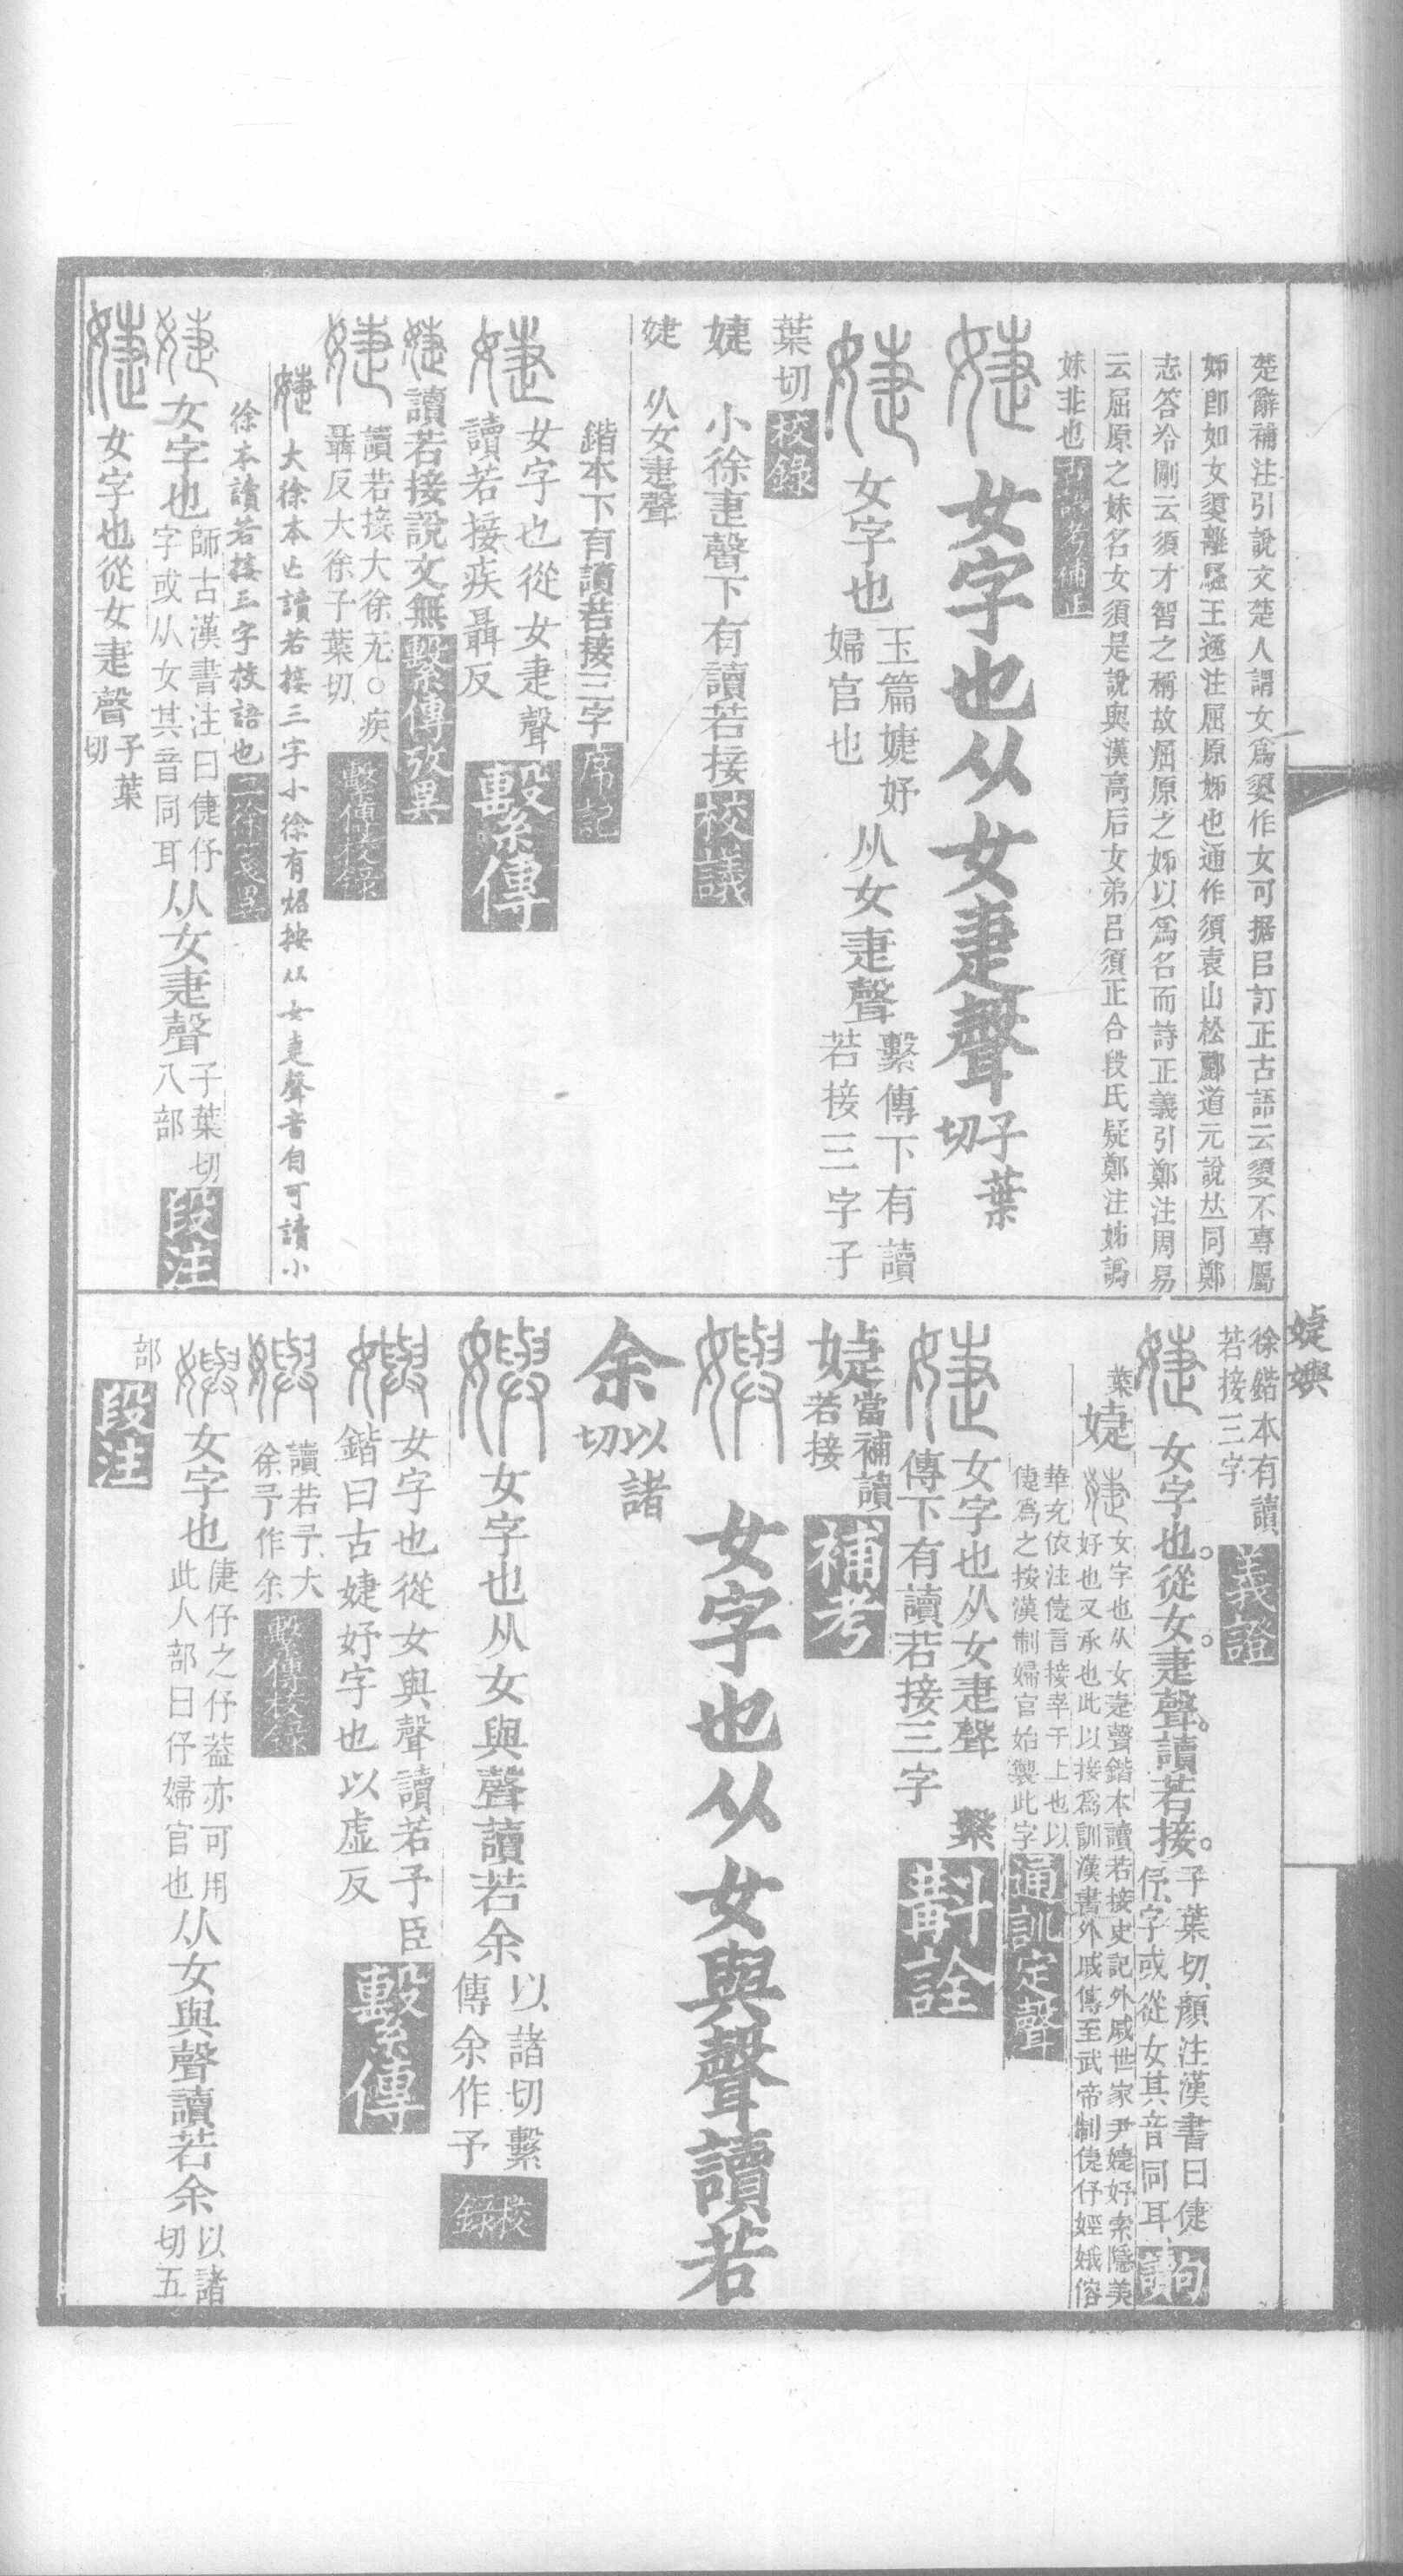 楚辭補注引說文楚人謂女爲嬃作女可据㠯訂正古語云嬃不專屬
姊卽如女嬃離騷王逸注屈原姊也通作須袁山松酈道元說𠀤同鄭
志答冷剛云須才智之稱故屈原之姊以爲名而詩正義引鄭注周易
云屈原之妹名女須是說與漢高后女弟呂須正合段氏疑鄭注姊譌
妹非也
婕 女字也从女疌聲 子葉切
婕 女字也 玉篇婕妤婦官也 从女疌聲 繫傳下有讀若接三字子
葉切 校錄
婕 小徐疌聲下有讀若接 校議
婕 从女疌聲
鍇本下有讀若接三字 席記
婕 女字也從女疌聲讀若接疾聶反 繫傳
婕 讀若接說文無 繫傳攷異
婕 讀若接大徐无○疾聶反大徐子葉切 繫傳校錄
婕 大徐本亡讀若接三字小徐有紹按从女疌聲音自可讀小
徐本讀若接三字校語也 二徐箋異
婕 女字也 師古漢書注曰倢伃字或从女其音同耳 从女疌聲 子葉切八部 段注
婕 女字也從女疌聲 子葉切
婕嬩
徐鍇本有讀若接三字 義證
婕 女字也從女疌聲讀若接 子葉切顏注漢書曰倢伃字或從女其音同耳 句讀
葉 婕 女字也从女疌聲鍇本讀若接史記外戚世家尹婕妤索隱美
好也又承也此以接爲訓漢書外戚傳至武帝制倢伃娙娥傛
華充依注倢言接幸于上也以
倢爲之按漢制婦官始製此字 通訓定聲
婕 女字也从女疌聲 繫傳下有讀若接三字 斠詮
婕 當補讀若接 補考
嬩 女字也从女與聲讀若
余 以諸切
嬩 女字也从女與聲讀若余 以諸切繫傳余作予 校錄
嬩 女字也從女與聲讀若予臣鍇曰古婕妤字也以虛反 繫傳
嬩 讀若予大徐予作余 繫傳校錄
嬩 女字也 倢伃之伃葢亦可用此人部曰伃婦官也 从女與聲讀若余 以諸切五
部 段注